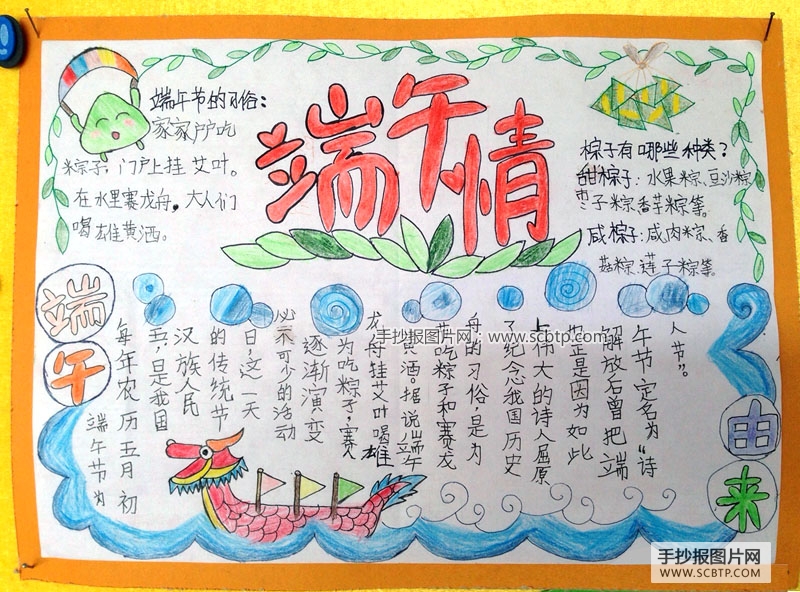 端午节的习俗:
家家户户吃
粽子,门户上挂艾叶。
在水里赛龙舟。大人们
喝雄黄酒。
端午情
粽子有哪些种类?
甜粽子:水果粽、豆沙粽
枣子粽、香芋粽等。
咸粽子:咸肉粽、香
菇粽、莲子粽等。
端午
由来
端午节为
每年农历五月初
五,是我国
汉族人民
的传统节
日,这一天
必不可少的活动
逐渐演变
为吃粽子,赛
龙舟挂艾叶喝雄
黄酒。据说端午
节吃粽子和赛龙
舟的习俗,是为
了纪念我国历史
上伟大的诗人屈原
也正是因为如此
解放后曾把端
午节定名为“诗
人节”。
手抄报图片网:www.scbtp.com
手抄报图片网
WWW.SCBTP.COM